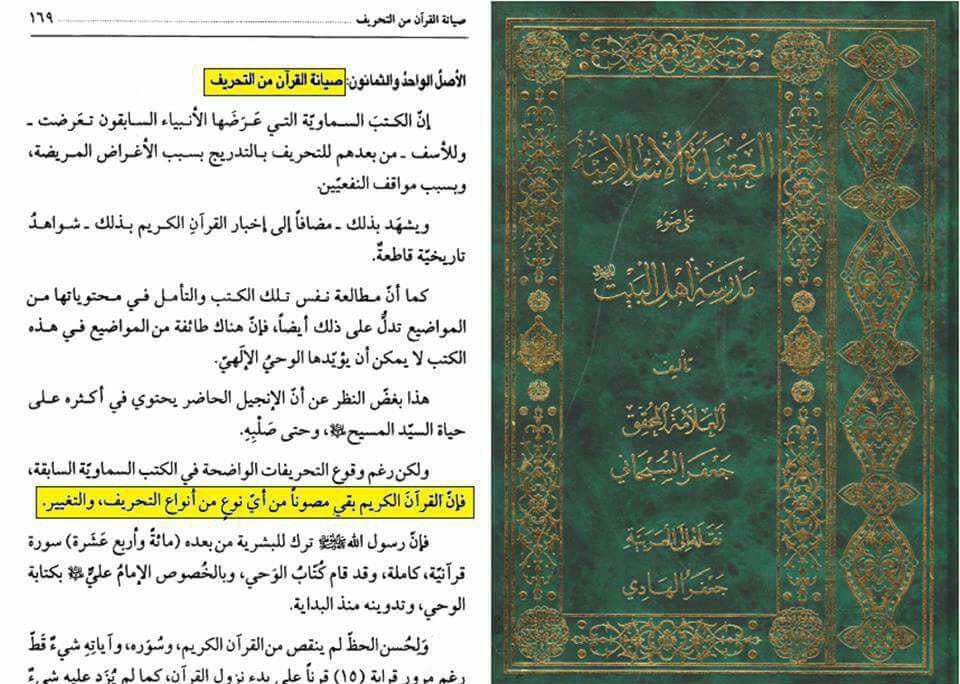 صيانة القرآن من التحريف ............ ١٦٩
الأصلُ الواحدُ والثمانون: صيانة القرآن من التحريف
إنّ الكتبَ السماويّة التي عَرَضَها الأنبياء السابقون تعَرضت ـ
وللأسف ـ من بعدهم للتحريف بالتدريج بسبب الأغراض المريضة،
وبسبب مواقف النفعيّين.
ويشهَد بذلك ـ مضافاً إلى إخبار القرآنِ الكريم بذلك ـ شواهدُ
تاريخيّة قاطعةٌ.
كما أنّ مطالعة نفس تلك الكتب والتأمل في محتوياتها من
المواضيع تدلُّ على ذلك أيضاً، فإنّ هناك طائفة من المواضيع في هذه
الكتب لا يمكن أن يؤيّدها الوحيُ الإلٰهيّ.
هذا بغضّ النظر عن أنّ الإنجيل الحاضر يحتوي في أكثره على
حياة السيّد المسيح، وحتى صَلْبِهِ.
ولكن رغم وقوع التحريفات الواضحة في الكتب السماويّة السابقة،
فإنّ القرآنَ الكريم بقي مصوناً من أيّ نوعٍ من أنواع التحريف، والتغيير.
فإنّ رسول الله ﷺ ترك للبشرية من بعده (مائةً وأربع عَشَرة) سورة
قرآنيّة، كاملة، وقد قام كُتّابُ الوَحي، وبالخُصوص الإمامُ عليّ بكتابة
الوحي، وتدوينه منذ البداية.
وَلِحُسن الحظّ لم ينقص من القرآن الكريم، وسُوَره، وآياتِه شيءٌ قَطّ
رغم مرور قرابة (١٥) قرناً على بدء نزول القرآن، كما لم يُزَد عليه شيءٌ
العقيدة الإسلامية
على ضوء
مدرسة أهل البيت
تأليف
العلامة المحقق
جعفر السبحاني
نقله إلى العربية
جعفر الهادي